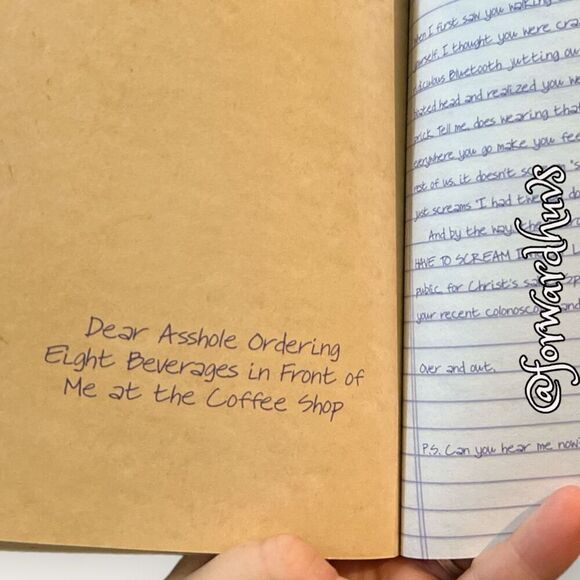 Dear Asshole Ordering
Eight Beverages in Front of
Me at the Coffee Shop
when I first saw you walking
I thought you were
Bluetooth jutting
head and realized you
prick. Tell me, does wearing that
everywhere you go make you feel
rest of us, it doesn't
just screams "I had
And by the way,
HAVE TO SCREAM
public, for Christ's
your recent
Over and out,
P.S. Can you hear me now
@forwardhuvs